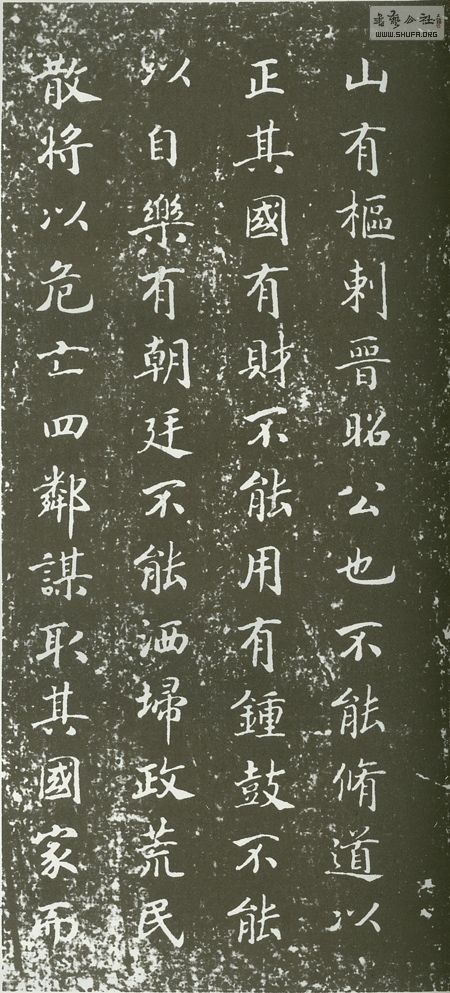 山有樞刺晉昭公也不能脩道以
正其國有財不能用有鍾鼓不能
以自樂有朝廷不能洒埽政荒民
散將以危亡四鄰謀取其國家而
書藝公社
WWW.SHUFA.ORG